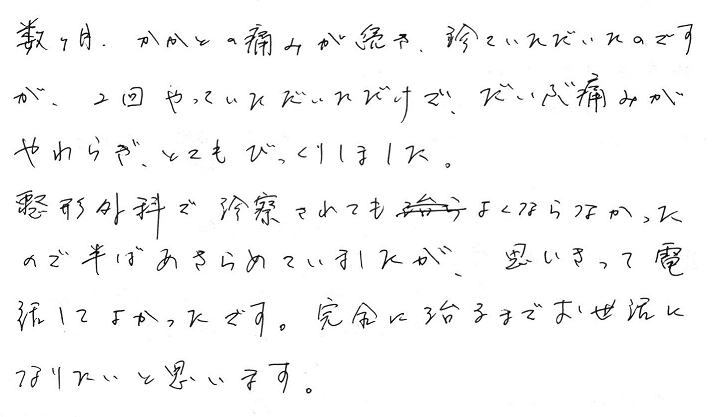 数ヶ月、かかとの痛みが続き、診ていただいたのです
が、2回やっていただいただけで、だいぶ痛みが
やわらぎ、とてもびっくりしました。
整形外科で診察されても治らよくならなかった
ので半ばあきらめていましたが、思いきって電
話してよかったです。完全に治るまでお世話に
なりたいと思います。